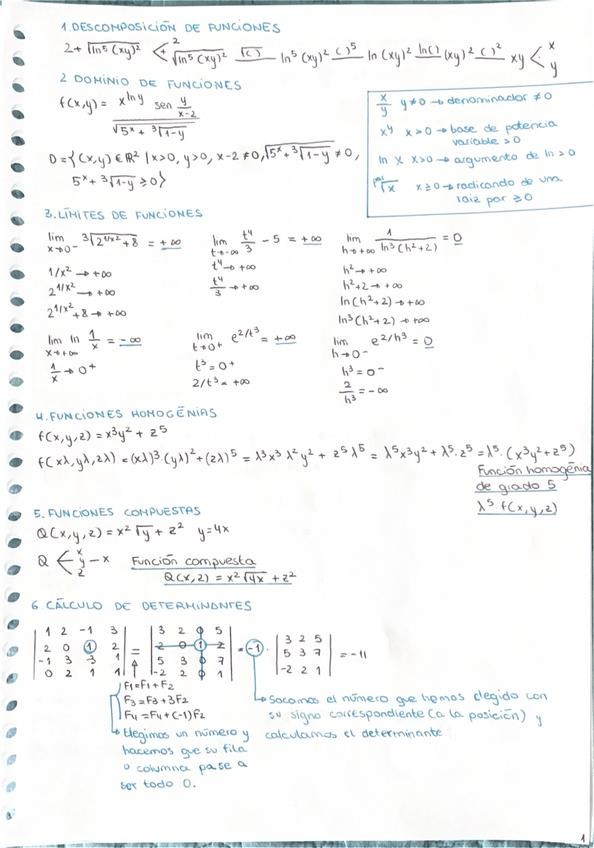 1. DESCOMPOSICIÓN DE FUNCIONES
2 + √ln⁵(xy)² < +2 √ln⁵(xy)² √( ) ln⁵(xy)² ( )⁵ ln(xy)² ln( ) (xy)² ( )² xy < x y
2 DOMINIO DE FUNCIONES
f(x,y) = x^ln y sen y/(x-2) / √(5ˣ + ³√(1-y))
D = {(x,y) ∈ ℝ² | x>0, y>0, x-2 ≠ 0, √(5ˣ + ³√(1-y)) ≠ 0,
5ˣ + ³√(1-y) ≥ 0}
x/y y ≠ 0 → denominador ≠ 0
xʸ x > 0 → base de potencia
variable > 0
ln x x>0 → argumento de ln > 0
par√x x ≥ 0 → radicando de una
raiz par ≥ 0
3. LÍMITES DE FUNCIONES
lim x→0⁻ ³√(2^(1/x²) + 8) = +∞
1/x² → +∞
2^(1/x²) → +∞
2^(1/x²) + 8 → +∞
lim t→-∞ t⁴/3 - 5 = +∞
t⁴ → +∞
t⁴/3 → +∞
lim h→+∞ 1/ln³(h²+2) = 0
h² → +∞
h²+2 → +∞
ln(h²+2) → +∞
ln³(h²+2) → +∞
lim x→+∞ ln 1/x = -∞
1/x → 0⁺
lim t→0⁺ e^(2/t³) = +∞
t³ = 0⁺
2/t³ = +∞
lim h→0⁻ e^(2/h³) = 0
h³ = 0⁻
2/h³ = -∞
4. FUNCIONES HOMOGÉNIAS
f(x,y,z) = x³y² + z⁵
f(xλ, yλ, zλ) = (xλ)³ (yλ)² + (zλ)⁵ = λ³x³ λ²y² + z⁵λ⁵ = λ⁵x³y² + λ⁵·z⁵ = λ⁵·(x³y²+z⁵)
Función homogénia
de grado 5
λ⁵ f(x,y,z)
5. FUNCIONES COMPUESTAS
Q(x,y,z) = x² √y + z² y = 4x
Q < x y – x z
Función compuesta
Q(x,z) = x² √4x + z²
6 CÁLCULO DE DETERMINANTES
| 1 2 -1 3 | | 3 2 0 5 |
| 2 0 1 2 | = | 2 0 1 2 | = -1 · | 3 2 5 |
| -1 3 -3 1 | | 5 3 0 7 | | 5 3 7 | = -11
| 0 2 1 1 | | -2 2 0 1 | | -2 2 1 |
F1 = F1 + F2
F3 = F3 + 3F2
F4 = F4 + (-1)F2
Elegimos un número y
hacemos que su fila
o columna pase a
ser todo 0.
Sacamos el número que hemos elegido con
su signo correspondiente (a la posición) y
calculamos el determinante
1